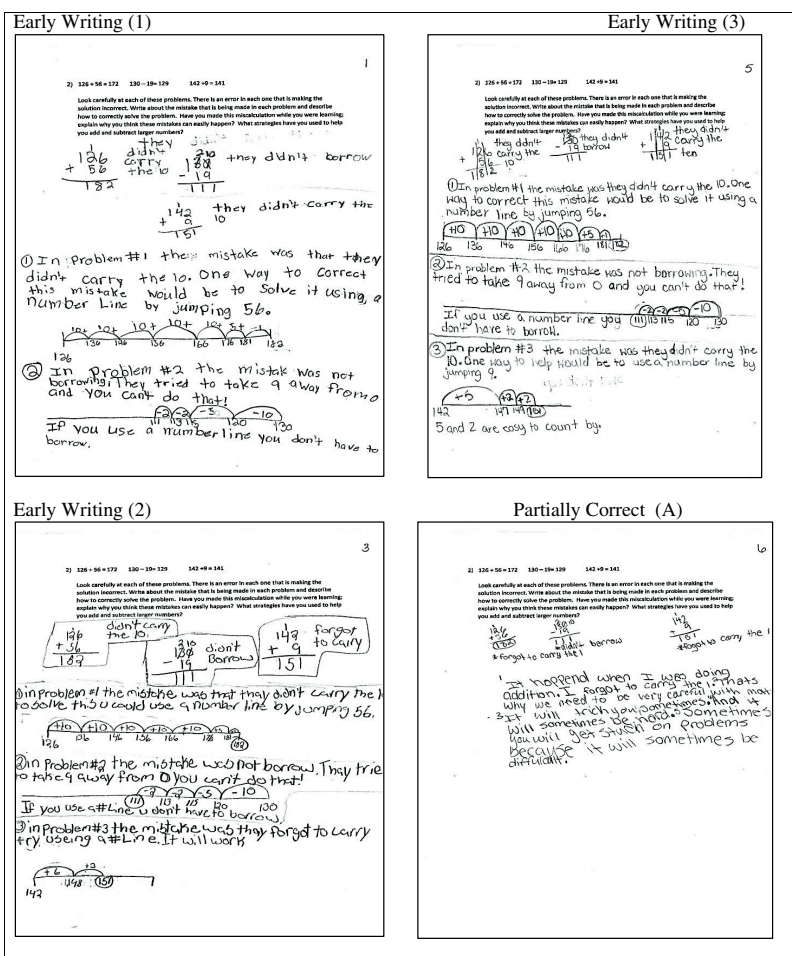 Early Writing (1)
1
2) 126 + 56 = 172 130 – 19= 129 142 +9 = 141
Look carefully at each of these problems. There is an error in each one that is making the
solution incorrect. Write about the mistake that is being made in each problem and describe
how to correctly solve the problem. Have you made this miscalculation while you were learning;
explain why you think these mistakes can easily happen? What strategies have you used to help
you add and subtract larger numbers?
they
didn't
carry
the 10
1
126
+ 56
182
130
- 19
111
they didn't borrow
1
142
+ 9
151
they didn't carry the
10
① In Problem #1 the mistake was that they
didn't carry the 10. One way to correct
this mistake would be to solve it using, a
number Line by jumping 56.
10+ 10+ 10+ 10+ 10+ 5+
126 136 146 156 166 176 181 182
② In Problem #2 the mistak was not
borrowing. They tried to take 9 away from 0
and you can't do that!
-2 -2 -5 -10
111 113 115 120 130
IF you use a number line you don't have to
borrow.
Early Writing (3)
5
2) 126 + 56 = 172 130 – 19= 129 142 +9 = 141
Look carefully at each of these problems. There is an error in each one that is making the
solution incorrect. Write about the mistake that is being made in each problem and describe
how to correctly solve the problem. Have you made this miscalculation while you were learning;
explain why you think these mistakes can easily happen? What strategies have you used to help
you add and subtract larger numbers?
126
+ 56
they didn't
carry the
10
- 19
111
they didn't
borrow
142
+ 9
151
they didn't
carry the
ten
① In problem #1 the mistake was they didn't carry the 10. One
way to correct this mistake would be to solve it using a
number line by jumping 56.
+10 +10 +10 +10 +10 +5 +1
126 136 146 156 166 176 181 182
② In problem #2 the mistake was not borrowing. They
tried to take 9 away from 0 and you can't do that!
If you use a number line you
don't have to borrow.
-2 -2 -5 -10
111 113 115 120 130
③ In problem #3 the mistake was they didn't carry the
10. One way to help would be to use a number line by
jumping 9.
+5 +2 +2
142 147 149 151
5 and 2 are easy to count by.
Early Writing (2)
3
2) 126 + 56 = 172 130 – 19= 129 142 +9 = 141
Look carefully at each of these problems. There is an error in each one that is making the
solution incorrect. Write about the mistake that is being made in each problem and describe
how to correctly solve the problem. Have you made this miscalculation while you were learning;
explain why you think these mistakes can easily happen? What strategies have you used to help
you add and subtract larger numbers?
didn't carry
the 10.
126
+ 56
182
- 19
111
didn't
Borrow
142
+ 9
151
forgot
to carry
① in problem #1 the mistake was that thay didn't carry the 1
to solve this u could use a number line by jumping 56.
+10 +10 +10 +10 +10 +5
126 136 146 156 166 176 181 182
② in Problem #2 the mistake was not borrow. Thay trie
to take 9 away from 0 you can't do that!
-2 -2 -5 -10
111 113 115 120 130
If you use a #Line u don't have to borrow.
③ in Problem #3 the mistake was thay forgot to carry
try useing a #Line. It will work
+6 +3
142 148 151
Partially Correct (A)
6
2) 126 + 56 = 172 130 – 19= 129 142 +9 = 141
Look carefully at each of these problems. There is an error in each one that is making the
solution incorrect. Write about the mistake that is being made in each problem and describe
how to correctly solve the problem. Have you made this miscalculation while you were learning;
explain why you think these mistakes can easily happen? What strategies have you used to help
you add and subtract larger numbers?
126
+56
182
*forgot to carry the 1
-19
111
*didn't borrow
142
9
151
*forgot to carry the 1
1 It happend when I was doing
addition. I forgot to carry the 1. Thats
why we need to be very careful with mat
3 It will trick you sometimes. And it
will sometimes be hard. Sometimes
you will get stuck on problems
because it will sometimes be